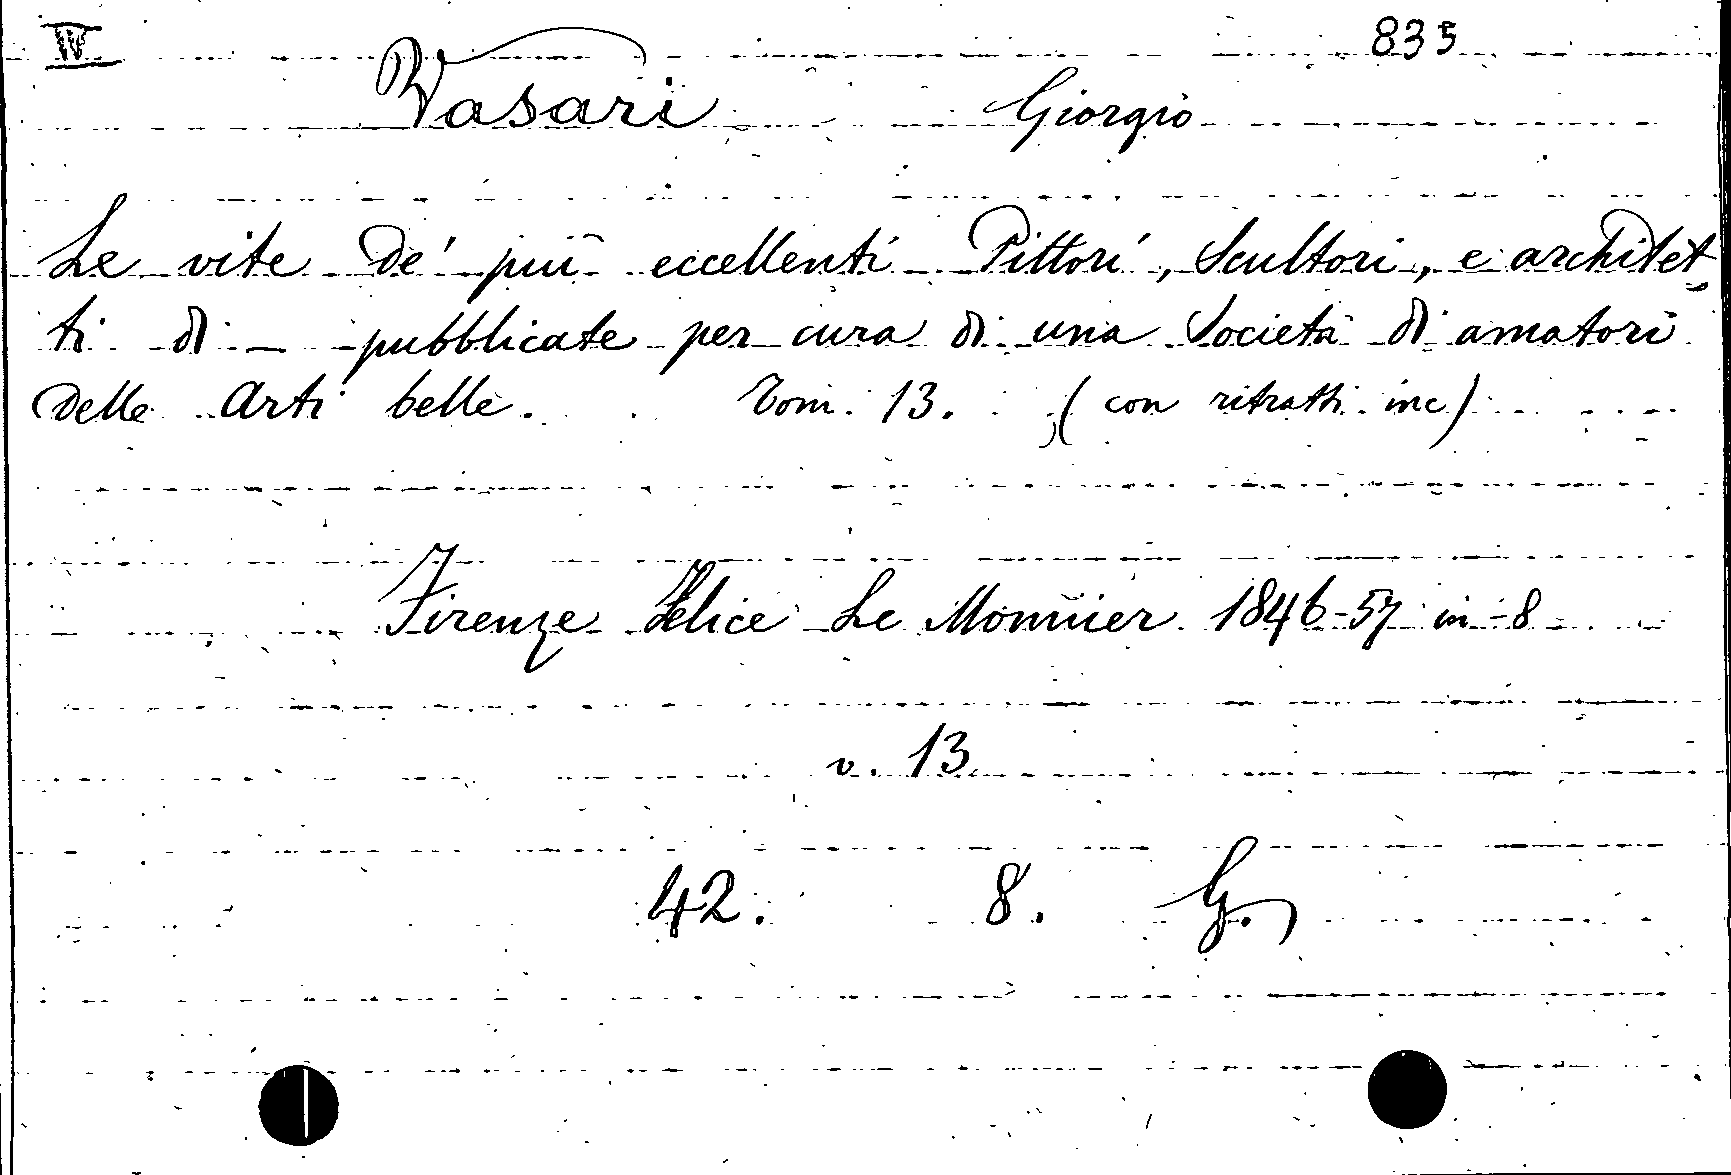 IV 835
Vasari Giorgio
Le vite de' più eccellenti Pittori, Scultori, e architet-
ti di — pubblicate per cura di una Società di amatori
delle Arti belle. Tom. 13. (con ritratti inc)
Firenze Felice Le Monnier 1846-57 in-8
v. 13
42. 8. G.